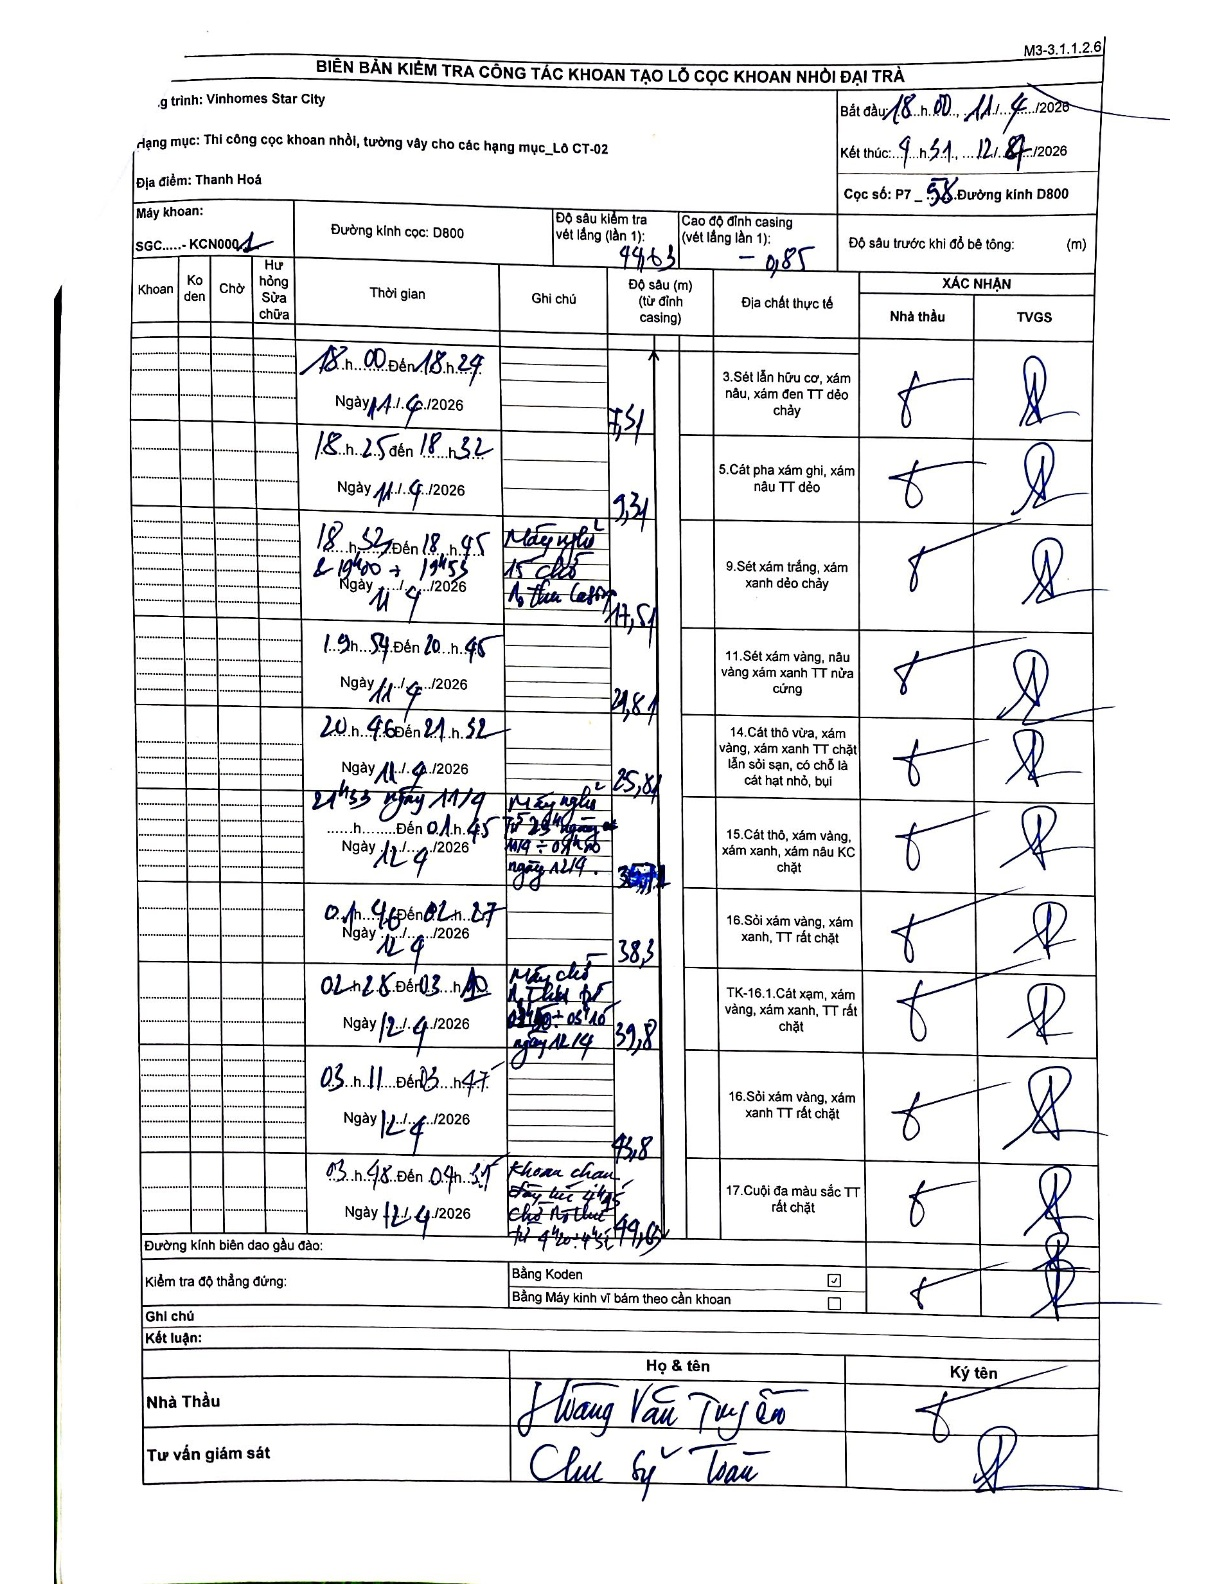 M3-3.1.1.2.6
BIÊN BẢN KIỂM TRA CÔNG TÁC KHOAN TẠO LỖ CỌC KHOAN NHỒI ĐẠI TRÀ
.g trình: Vinhomes Star City
Bắt đầu: 18 h 00, 11/4/2026
Hạng mục: Thi công cọc khoan nhồi, tường vây cho các hạng mục_Lô CT-02
Kết thúc: h , 12/ /2026
Địa điểm: Thanh Hoá
Cọc số: P7 _ 58 Đường kính D800
Máy khoan:
SGC.....- KCN0001
Đường kính cọc: D800
Độ sâu kiểm tra vét lắng (lần 1):
44,63
Cao độ đỉnh casing (vét lắng lần 1):
- 0,85
Độ sâu trước khi đổ bê tông: (m)
Khoan
Ko den
Chờ
Hư hỏng Sửa chữa
Thời gian
Ghi chú
Độ sâu (m) (từ đỉnh casing)
Địa chất thực tế
XÁC NHẬN
Nhà thầu
TVGS
18 h 00 Đến 18 h 24
Ngày 11/4/2026
7,51
3.Sét lẫn hữu cơ, xám
nâu, xám đen TT dẻo
chảy
18 h 25 đến 18 h 32
Ngày 11/4/2026
9,31
5.Cát pha xám ghi, xám
nâu TT dẻo
18 h Đến 18 h 45
& 19h00 ÷ 19h53
Ngày 11/4/2026
Máy nghỉ
chờ
17,51
9.Sét xám trắng, xám
xanh dẻo chảy
19 h 54 Đến 20 h 45
Ngày 11/4/2026
21,81
11.Sét xám vàng, nâu
vàng xám xanh TT nửa
cứng
20 h 46 Đến 21 h 32
Ngày 11/4/2026
25,81
14.Cát thô vừa, xám
vàng, xám xanh TT chặt
lẫn sỏi sạn, có chỗ là
cát hạt nhỏ, bụi
21h33 ngày 11/4
......h........Đến 01 h 45
Ngày 12/4/2026
Máy nghỉ
từ
11/4 ÷
ngày 12/4.
15.Cát thô, xám vàng,
xám xanh, xám nâu KC
chặt
01 h 46 Đến 02 h 27
Ngày 12/4/2026
38,3
16.Sỏi xám vàng, xám
xanh, TT rất chặt
02 h 28 Đến 03 h 10
Ngày 12/4/2026
Máy chờ
÷ 03h10
ngày 12/4
39,8
TK-16.1.Cát xạm, xám
vàng, xám xanh, TT rất
chặt
03 h 11 Đến 03 h 47
Ngày 12/4/2026
43,8
16.Sỏi xám vàng, xám
xanh TT rất chặt
03 h 48 Đến 04 h 51
Ngày 12/4/2026
Khoan chạm
đáy lúc
chờ
từ 4h20 ÷
44,63
17.Cuội đa màu sắc TT
rất chặt
Đường kính biên dao gầu đào:
Kiểm tra độ thẳng đứng:
Bằng Koden ☑
Bằng Máy kinh vĩ bám theo cần khoan ☐
Ghi chú
Kết luận:
Họ & tên
Ký tên
Nhà Thầu
Hoàng Văn Tuyến
Tư vấn giám sát
Chu Sỹ Toàn